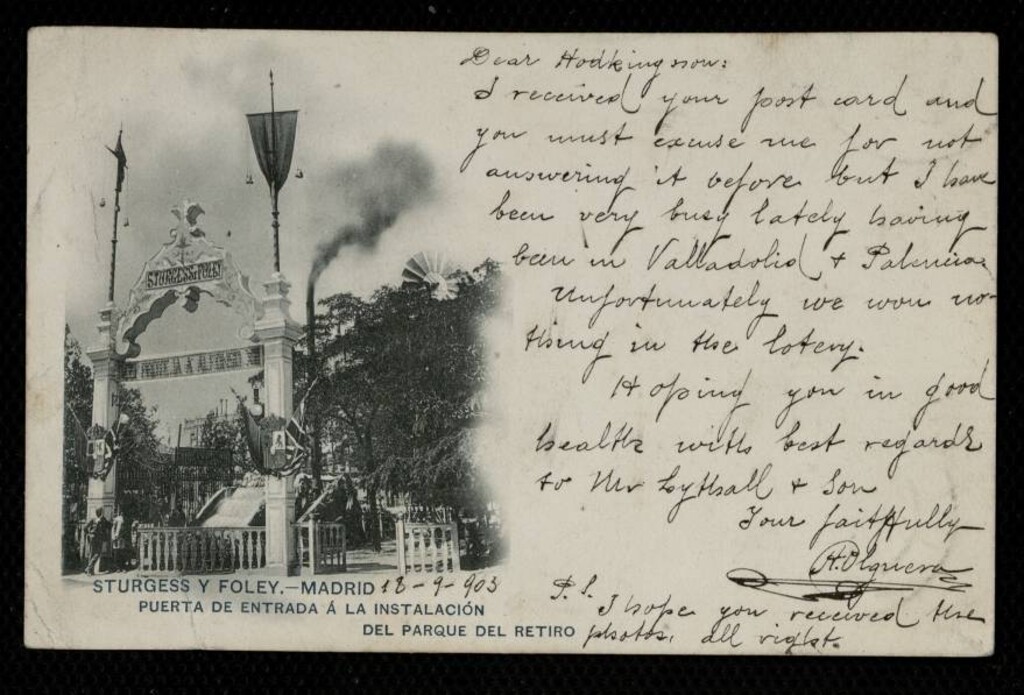 Dear Hodkingson:
I received your post card and
you must excuse me for not
answering it before but I have
been very busy lately having
been in Valladolid & Palencia.
Unfortunately we won no-
thing in the lotery.
Hoping you in good
health with best regards
to Mr Lythall & Son
Your faithfully
A. Olguera
P.S.
I hope you received the
photos, all right.
STURGESS Y FOLEY
STURGESS Y FOLEY.—MADRID 18-9-903
PUERTA DE ENTRADA Á LA INSTALACIÓN
DEL PARQUE DEL RETIRO